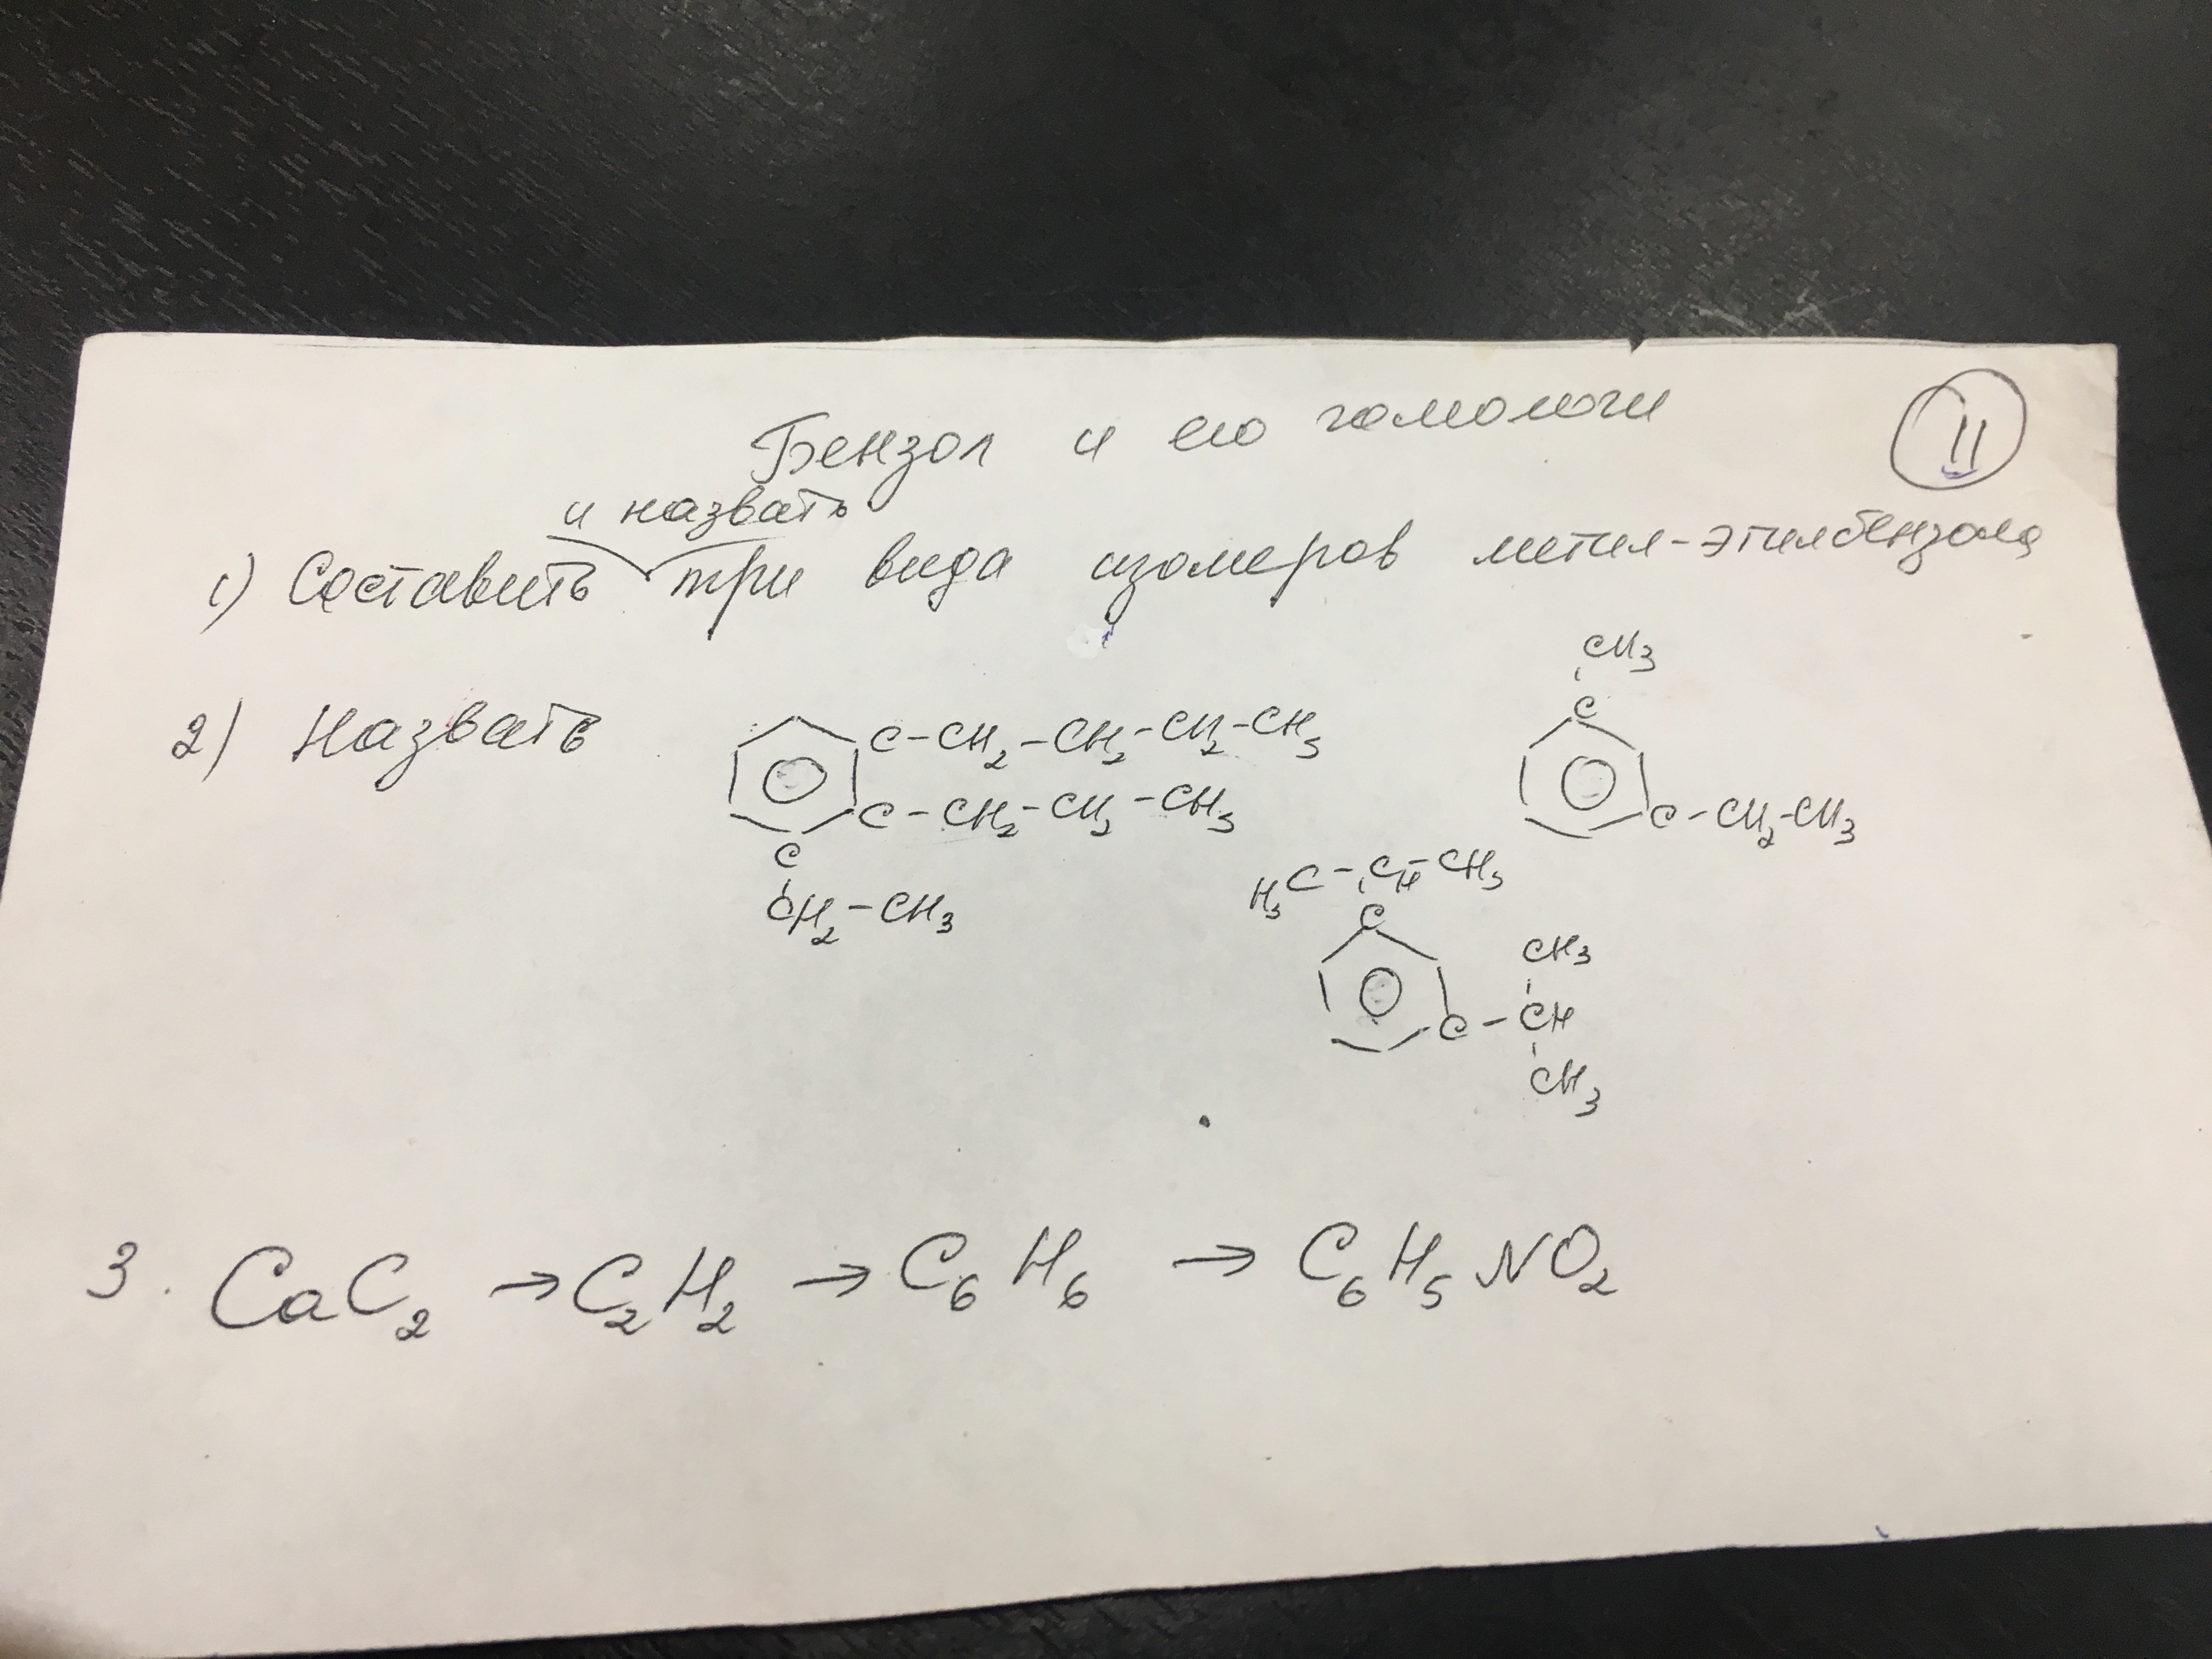 Бензол и его гомологи
11
и назвать
1) Составить три вида изомеров метил-этилбензола
2) Назвать
C-CH2-CH2-CH2-CH3
C-CH2-CH2-CH3
C
CH2-CH3
CH3
C
C-CH2-CH3
H3C-CH-CH3
C
CH3
C-CH
CH3
3. CaC2 → C2H2 → C6H6 → C6H5NO2